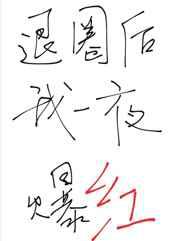 退圈后
我一夜
爆红